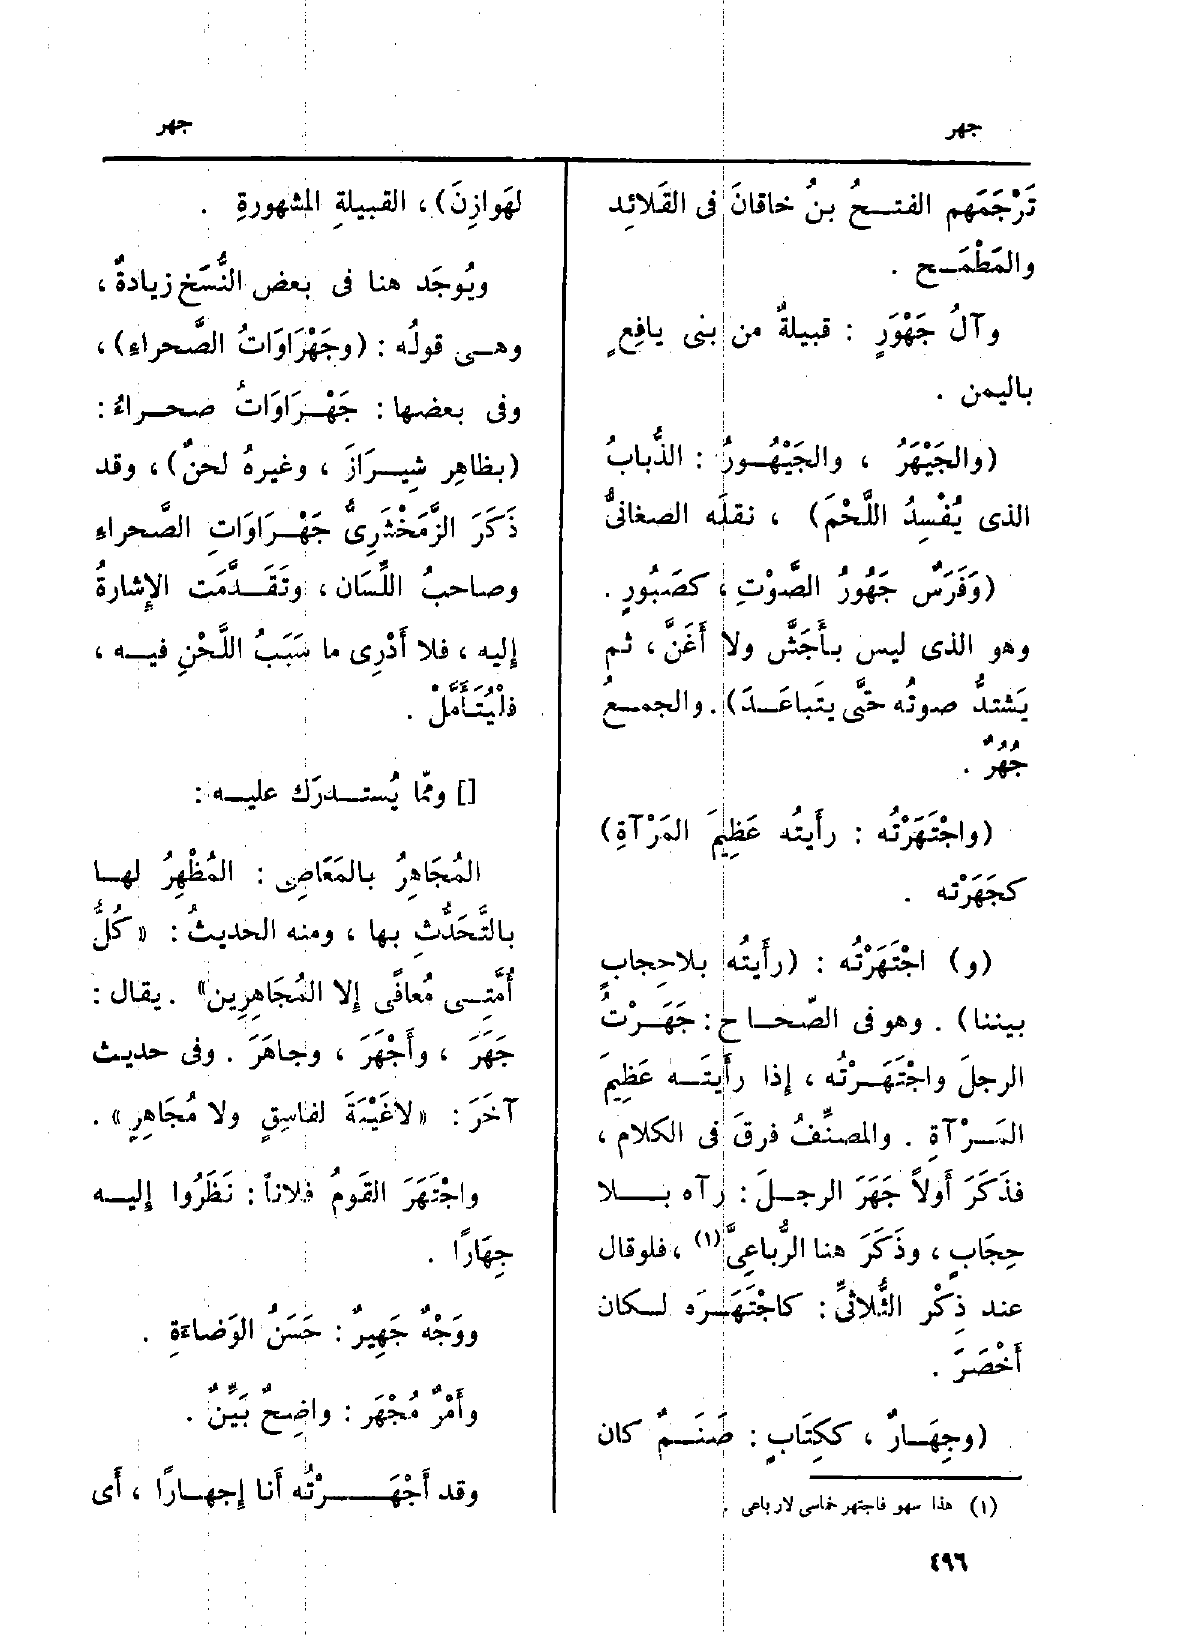 جهر
جهر
تَرْجَمَهم الفتــحُ بنُ خاقانَ فى القَلائِد
والمَطْمَــح .
وآلُ جَهْوَرٍ : قبيلةٌ من بنى يافِعٍ
باليمن .
(والجَيْهَرُ ، والجَيْهُــورُ : الذُّبابُ
الذى يُفْسِدُ اللَّحْمَ) ، نقلَه الصغانىُّ
(وَفَرَسٌ جَهُورُ الصَّوْتِ ، كصَبُورٍ .
وهو الذى ليس بـأَجَشَّ ولا أَغَنَّ ، ثم
يَشتدُّ صوتُه حتَّى يتَباعَــدَ) . والجمــعُ
جُهُرٌ .
(واجْتَهَرْتُه : رأَيتُه عَظِيمَ المَرْآةِ)
كجَهَرْته .
(و) اجْتَهَرْتُه : (رأَيتُه بلاحِجابٍ
بيننا) . وهو فى الصّحــاح : جَهَــرْتُ
الرجلَ واجْتَهَــرْتُه ، إذا رأَيتَــه عَظِيمَ
المَــرْآةِ . والمصنِّفُ فرقَ فى الكلام ،
فذَكَرَ أَولاً جَهَرَ الرجــلَ : رآه بــلا
حِجَابٍ ، وذَكَرَ هنا الرُّباعِىَّ (١) ، فلو قال
عند ذِكْر الثُّلاثىِّ : كاجْتَهَــرَه لــكان
أَخْصَرَ .
(وجِهَــارٌ ، ككِتَابٍ : صَنَــمٌ كان
(١) هذا سهو فاجتهر خماسى لا رباعى .
لهَوازِنَ) ، القبيلةِ المشهورةِ .
ويُوجَد هنا فى بعض النُّسَخ زيادةٌ ،
وهــى قولُه : (وجَهْرَاوَاتُ الصَّحراءِ) ،
وفى بعضها : جَهْــرَاوَاتُ صحــراءُ :
(بظاهِر شِيــرَازَ ، وغيرهُ لحنٌ) ، وقد
ذَكَرَ الزَّمَخْشَرِىُّ جَهْــرَاوَاتِ الصَّحراءِ
وصاحبُ اللِّسَان ، وتَقَــدَّمَت الإِشارةُ
إليه ، فلا أَدْرِى ما سَبَبُ اللَّحْنِ فيــه ،
فلْيُتَأَمَّلْ .
[] وممّا يُستــدرَك عليــه :
المُجَاهِرُ بالمَعَاصِى : المُظْهِرُ لهــا
بالتَّحَدُّثِ بها ، ومنه الحديثُ : « كُلُّ
أُمَّتِــى مُعافًى إلا المُجَاهِرِين » . يقال :
جَهَرَ ، وأَجْهَرَ ، وجاهَرَ . وفى حديث
آخَرَ : « لاغَيْبَةَ لفاسِقٍ ولا مُجَاهِرٍ » .
واجْتَهَرَ القَومُ فلاناً : نَظَرُوا إليــه
جِهَارًا .
ووَجْهٌ جَهِيرٌ : حَسَنُ الوَضاءَةِ .
وأَمْرٌ مُجْهَر : واضِحٌ بَيِّنٌ .
وقد أَجْهَــــرْتُه أَنا إجهــارًا ، أَى
٤٩٦